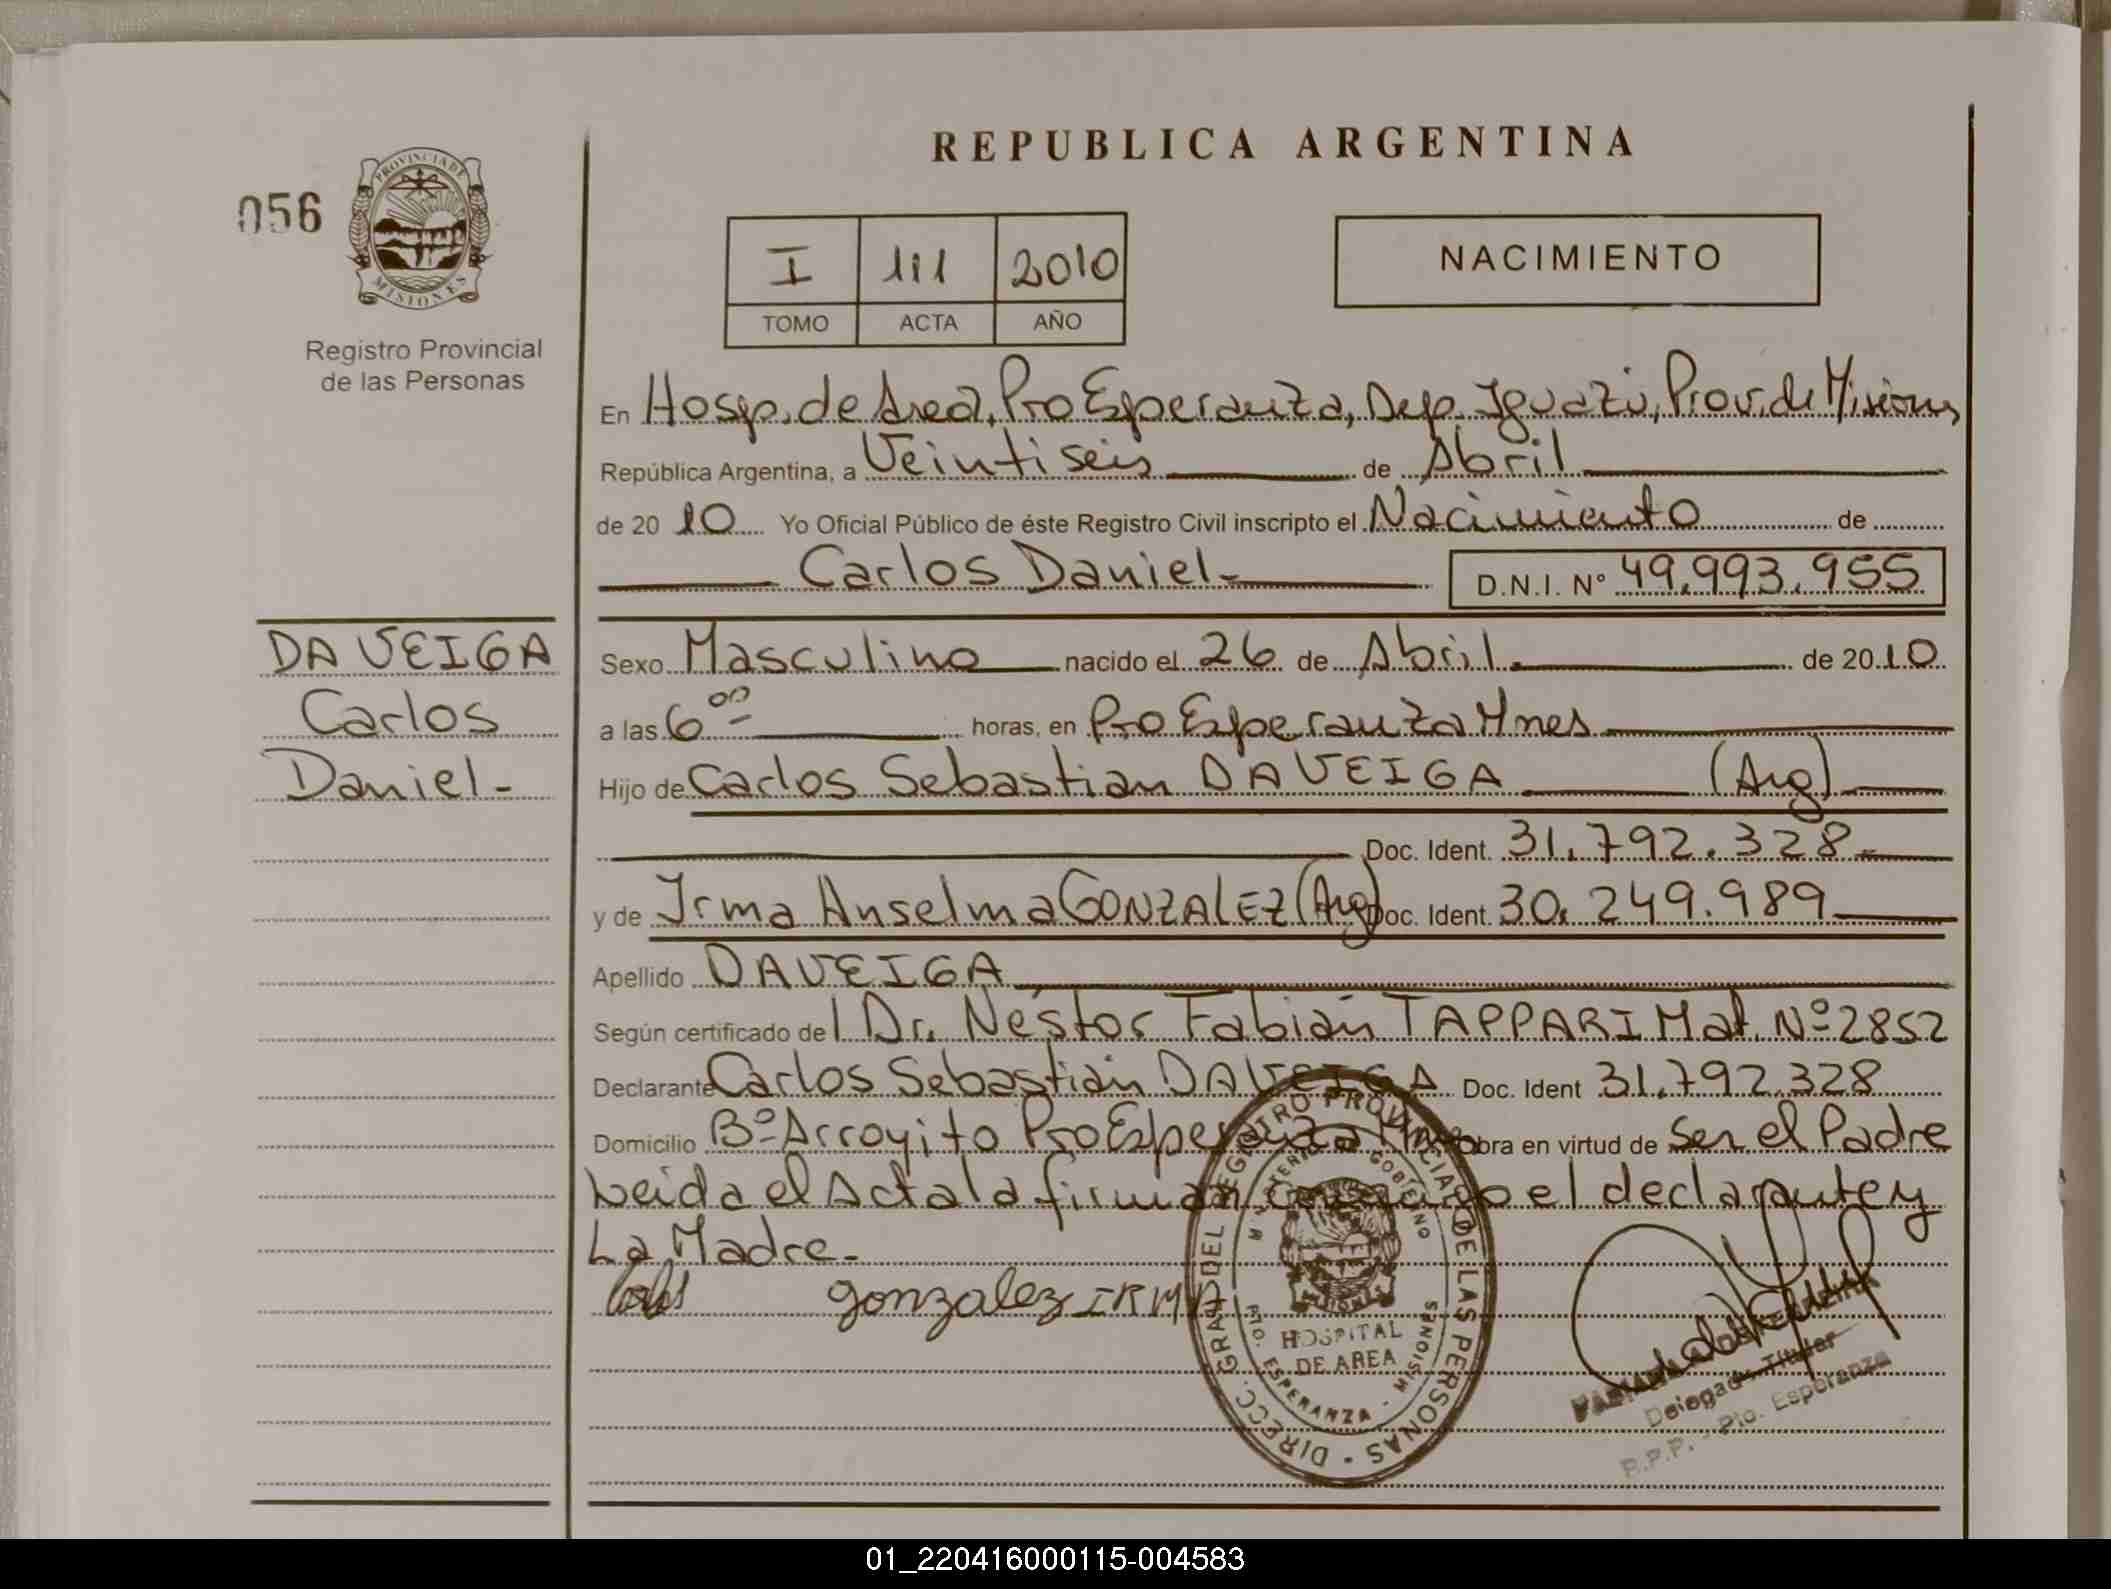 REPUBLICA ARGENTINA
056
PROVINCIA DE
MISIONES
Registro Provincial
de las Personas
I 111 2010
TOMO ACTA AÑO
NACIMIENTO
En Hosp. de Area, Pto Esperanza, Dep. Iguazú, Prov. de Misiones
República Argentina, a Veintiseis de Abril
de 20 10 Yo Oficial Público de éste Registro Civil inscripto el Nacimiento de
Carlos Daniel- D.N.I. Nº 49.993.955
DA VEIGA
Carlos
Daniel-
Sexo Masculino nacido el 26 de Abril. de 20 10
a las 6⁰⁰ horas, en Pto Esperanza Mnes
Hijo de Carlos Sebastian DA VEIGA (Arg)
Doc. Ident. 31.792.328
y de Irma Anselma GONZALEZ (Arg) Doc. Ident. 30.249.989
Apellido DA VEIGA
Según certificado de l Dr. Néstor Fabián TAPPARI Mat. Nº 2852
Declarante Carlos Sebastián DA VEIGA Doc. Ident 31.792.328
Domicilio Bº Arroyito Pto Esperanza obra en virtud de ser el Padre
Leida el Acta la firman conmigo el declarante y
La Madre-
gonzalez IRMA
DIRECC. GRAL DEL REGISTRO PROVINCIAL DE LAS PERSONAS
MINISTERIO DE GOBIERNO
MISIONES
HOSPITAL
DE AREA
PTO. ESPERANZA - MISIONES
Delegado Titular
R.P.P. - Pto. Esperanza
01_220416000115-004583